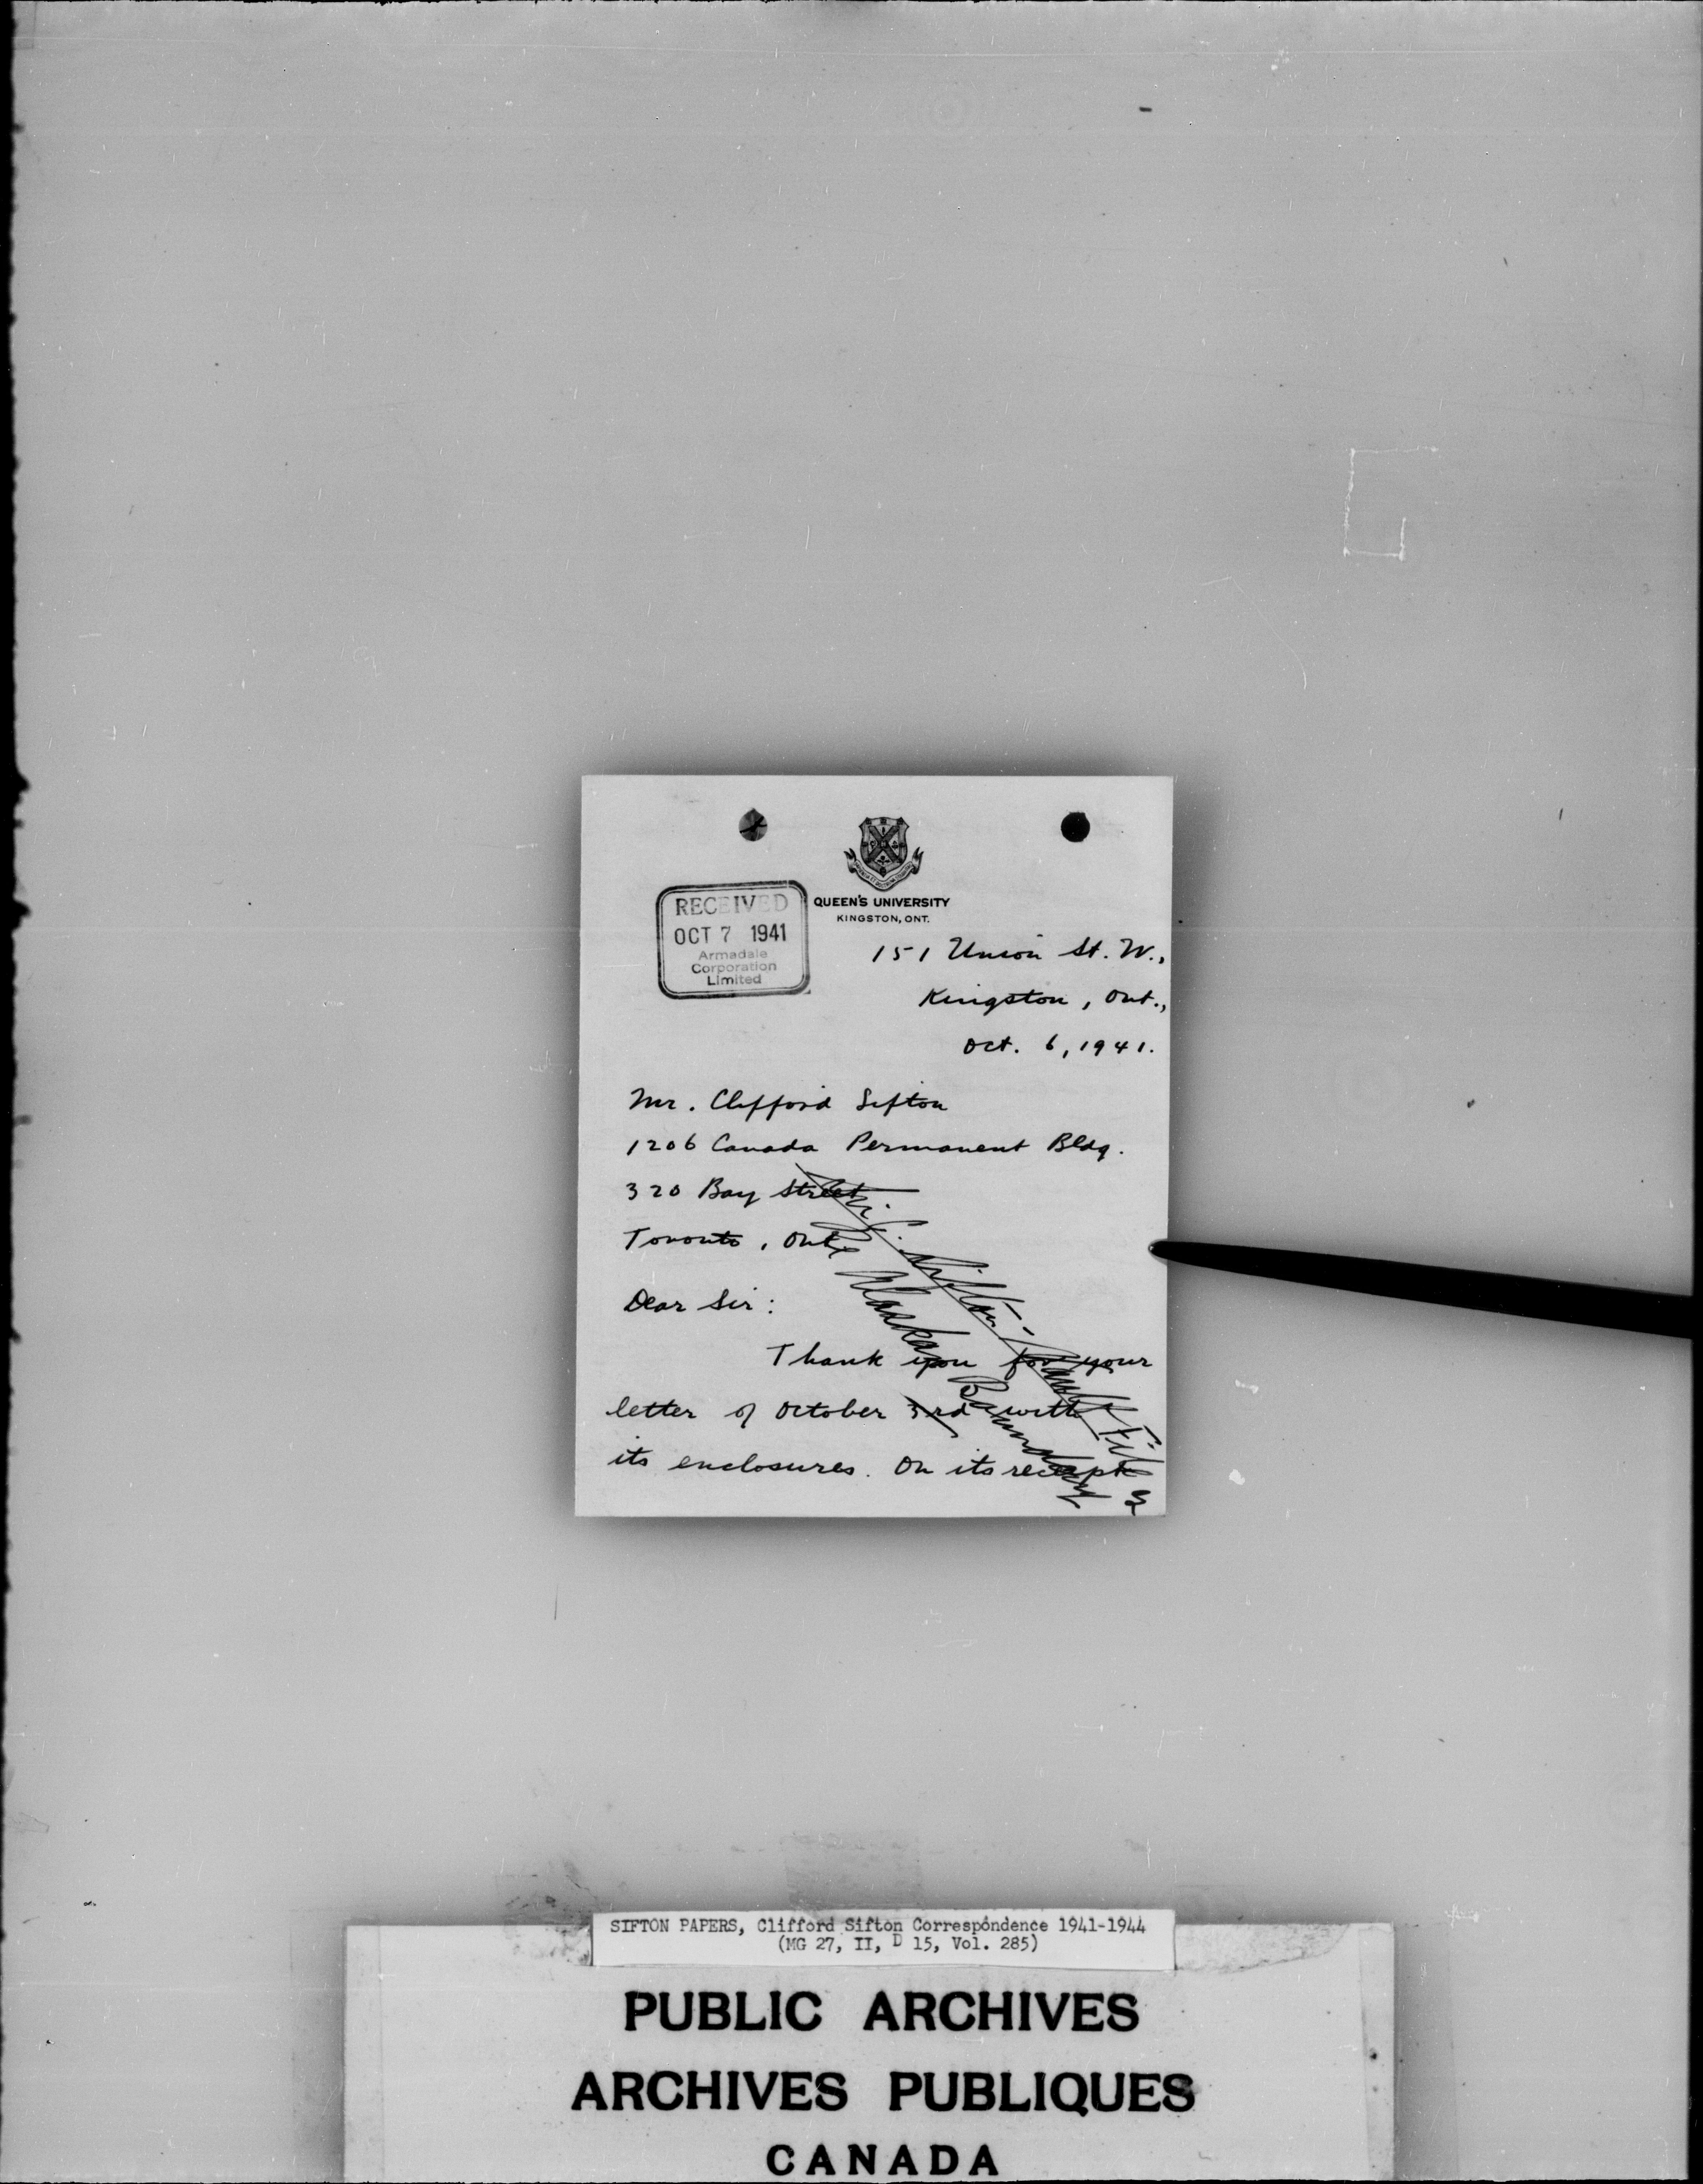 QUEEN'S UNIVERSITY
KINGSTON, ONT.
RECEIVED
OCT 7 1941
Armadale
Corporation
Limited
151 Union St. W.,
Kingston, Ont.,
Oct. 6, 1941.
Mr. Clifford Sifton
1206 Canada Permanent Bldg.
320 Bay Street
Toronto, Ont.
Dear Sir:
Thank you for your
letter of October 3rd with
its enclosures. On its receipt
Sifton - Family File
Re Alaska Boundary
SIFTON PAPERS, Clifford Sifton Correspondence 1941-1944
(MG 27, II, D 15, Vol. 285)
PUBLIC ARCHIVES
ARCHIVES PUBLIQUES
CANADA